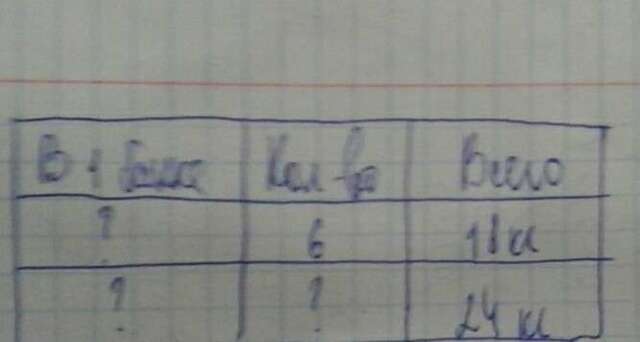 В 1 банке Кол во Всего
? 6 18 кг
? ? 24 кг